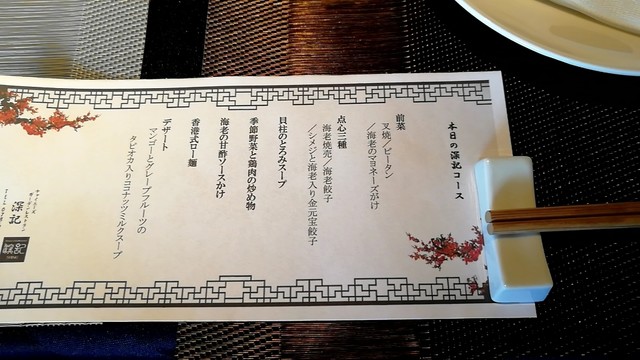 本日の深記コース
前菜
叉焼/ピータン
/海老のマヨネーズがけ
点心三種
海老焼売/海老餃子
/シメジと海老入り金元宝餃子
貝柱のとろみスープ
季節野菜と鶏肉の炒め物
海老の甘酢ソースかけ
香港式ロー麺
デザート
マンゴーとグレープフルーツの
タピオカ入りココナッツミルクスープ
深記